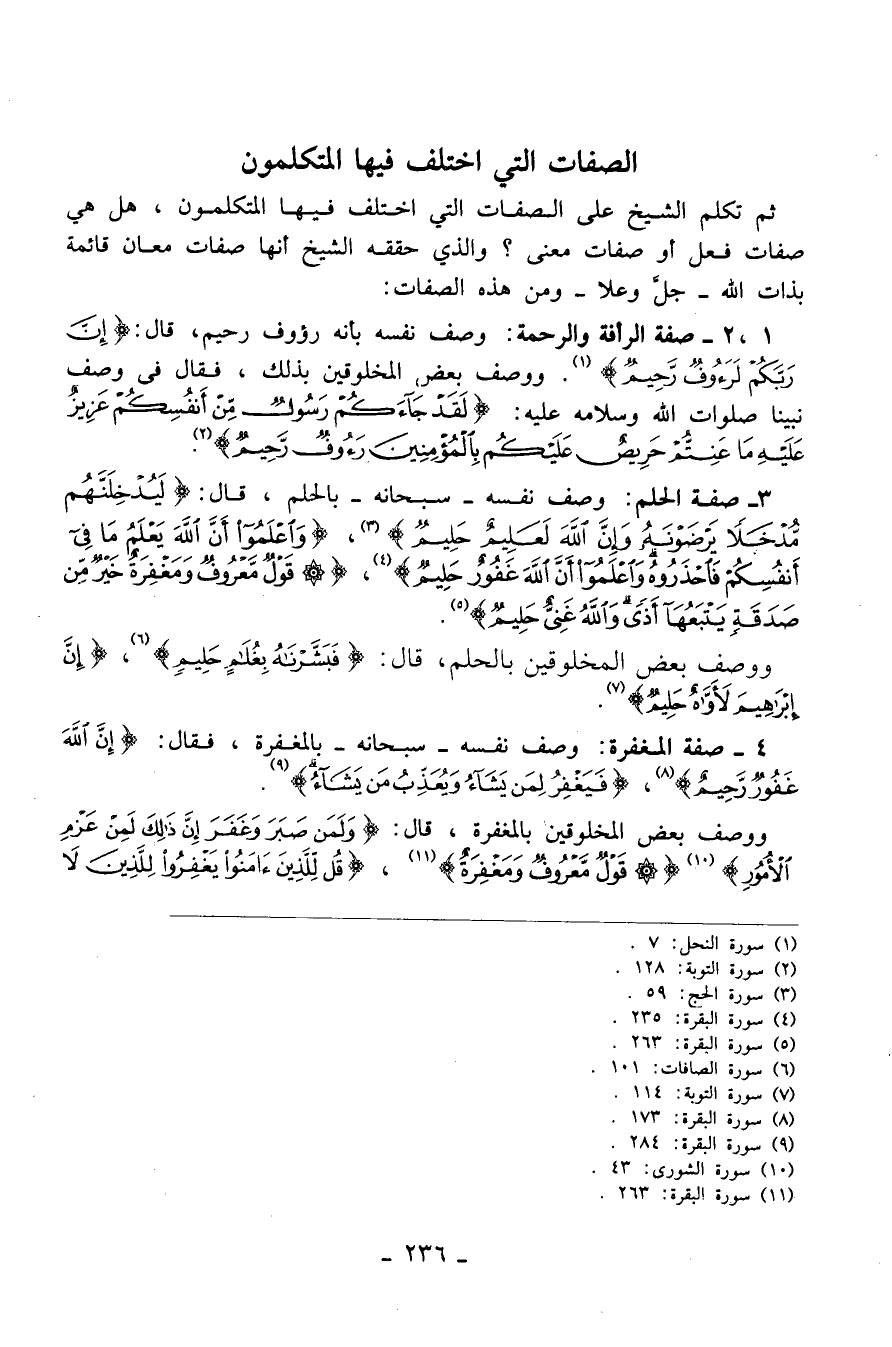 الصفات التي اختلف فيها المتكلمون
ثم تكلم الشيخ على الصفات التي اختلف فيها المتكلمون ، هل هي
صفات فعل أو صفات معنى ؟ والذي حققه الشيخ أنها صفات معان قائمة
بذات الله ـ جلَّ وعلا ـ ومن هذه الصفات:
١ ،٢ ـ صفة الرأفة والرحمة: وصف نفسه بأنه رؤوف رحيم، قال: ﴿ إِنَّ
رَبَّكُمْ لَرَءُوفٌ رَّحِيمٌ ﴾ (١). ووصف بعض المخلوقين بذلك ، فقال فى وصف
نبينا صلوات الله وسلامه عليه: ﴿ لَقَدْ جَآءَكُمْ رَسُولٌ مِّنْ أَنفُسِكُمْ عَزِيزٌ
عَلَيْهِ مَا عَنِتُّمْ حَرِيصٌ عَلَيْكُم بِٱلْمُؤْمِنِينَ رَءُوفٌ رَّحِيمٌ ﴾ (٢).
٣ـ صفة الحلم: وصف نفسه ـ سبحانه ـ بالحلم ، قال: ﴿ لَيُدْخِلَنَّهُم
مُّدْخَلًا يَرْضَوْنَهُۥ وَإِنَّ ٱللَّهَ لَعَلِيمٌ حَلِيمٌ ﴾ (٣)، ﴿ وَٱعْلَمُوٓا۟ أَنَّ ٱللَّهَ يَعْلَمُ مَا فِىٓ
أَنفُسِكُمْ فَٱحْذَرُوهُ وَٱعْلَمُوٓا۟ أَنَّ ٱللَّهَ غَفُورٌ حَلِيمٌ ﴾ (٤)، ﴿ ۞ قَوْلٌ مَّعْرُوفٌ وَمَغْفِرَةٌ خَيْرٌ مِّن
صَدَقَةٍ يَتْبَعُهَآ أَذًى وَٱللَّهُ غَنِىٌّ حَلِيمٌ ﴾ (٥).
ووصف بعض المخلوقين بالحلم، قال: ﴿ فَبَشَّرْنَٰهُ بِغُلَٰمٍ حَلِيمٍ ﴾ (٦)، ﴿ إِنَّ
إِبْرَٰهِيمَ لَأَوَّٰهٌ حَلِيمٌ ﴾ (٧).
٤ ـ صفة المغفرة: وصف نفسه ـ سبحانه ـ بالمغفرة ، فقال: ﴿ إِنَّ ٱللَّهَ
غَفُورٌ رَّحِيمٌ ﴾ (٨)، ﴿ فَيَغْفِرُ لِمَن يَشَآءُ وَيُعَذِّبُ مَن يَشَآءُ ﴾ (٩).
ووصف بعض المخلوقين بالمغفرة ، قال: ﴿ وَلَمَن صَبَرَ وَغَفَرَ إِنَّ ذَٰلِكَ لَمِنْ عَزْمِ
ٱلْأُمُورِ ﴾ (١٠) ﴿ ۞ قَوْلٌ مَّعْرُوفٌ وَمَغْفِرَةٌ ﴾ (١١) ، ﴿ قُل لِّلَّذِينَ ءَامَنُوا۟ يَغْفِرُوا۟ لِلَّذِينَ لَا
(١) سورة النحل: ٧ .
(٢) سورة التوبة: ١٢٨ .
(٣) سورة الحج: ٥٩ .
(٤) سورة البقرة: ٢٣٥ .
(٥) سورة البقرة: ٢٦٣ .
(٦) سورة الصافات: ١٠١ .
(٧) سورة التوبة: ١١٤ .
(٨) سورة البقرة: ١٧٣ .
(٩) سورة البقرة: ٢٨٤ .
(١٠) سورة الشورى: ٤٣ .
(١١) سورة البقرة: ٢٦٣ .
ـ ٢٣٦ ـ